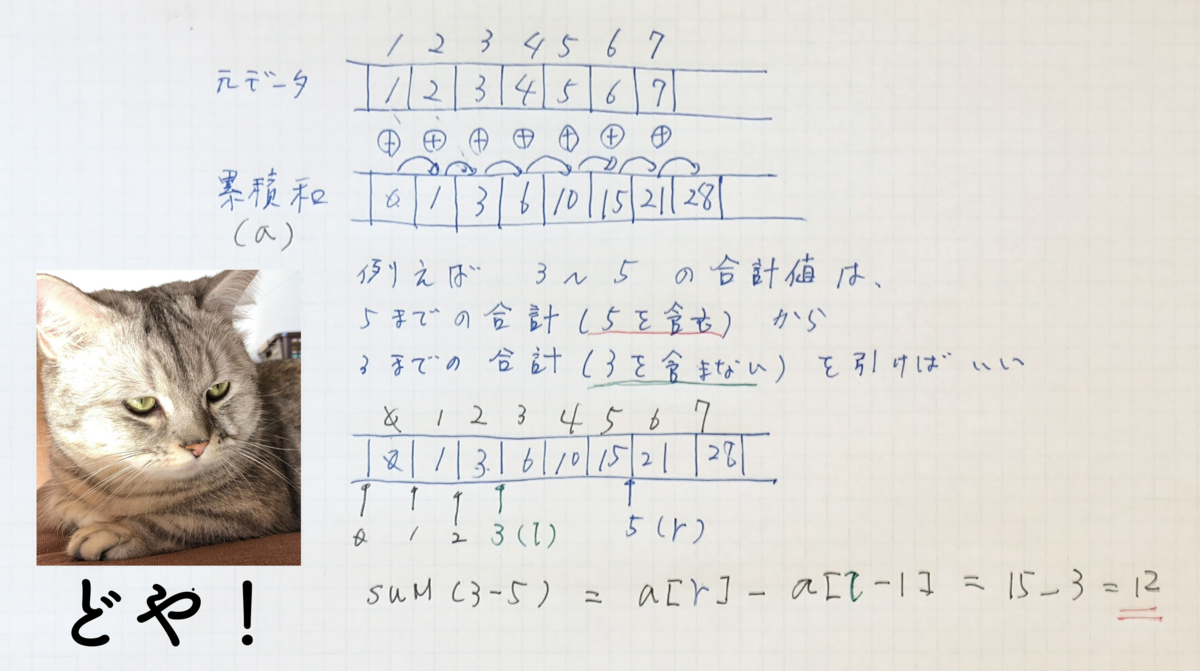 1 2 3 4 5 6 7
元データ 1 2 3 4 5 6 7
⊕ ⊕ ⊕ ⊕ ⊕ ⊕ ⊕
累積和 0 1 3 6 10 15 21 28
(a)
例えば 3〜5 の合計値は、
5までの合計(5を含む)から
3までの合計(3を含まない)を引けばいい
0 1 2 3 4 5 6 7
0 1 3 6 10 15 21 28
0 1 2 3(l) 5(r)
sum(3-5) = a[r] - a[l-1] = 15-3 = 12
どや！